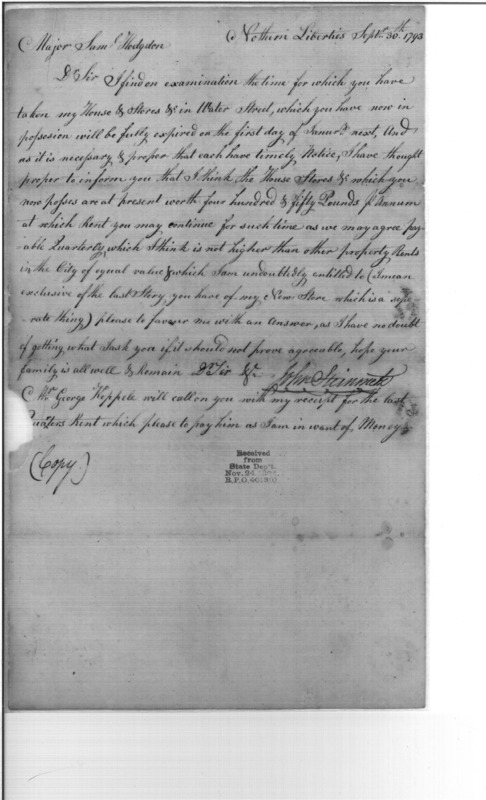 Nothern Liberties Septr. 30th. 1793
Major Saml. Hodgdon
Dr. Sir I find on examination the time for which you have
taken my House & Stores &c in Water Street, which you have now in
possesion will be fully expired on the first day of Janury. next, And
as it is necessary & proper that each have timely Notice, I have thought
proper to inform you that I think the House Stores & which you
now posses are at present worth four hundred & fifty Pounds p Annum
at which Rent you may continue for such time as we may agree pay-
-able Quarterly, which I think is not higher than other property Rents
in the City of equal value & which I am undoubtibly entitled to (I mean
exclusive of the last Story you have of my New Store which is a sepe-
-rate thing) please to favour me with an Answer, as I have no doubt
of getting what I ask you if it should not prove agreeable, hope your
family is all well & Remain Dr. Sir &c
John Steinmetz
Mr. George Keppele will call on you with my receipt for the last
Quarters Rent which please to pay him as I am in want of Money
(Copy.)
Received
from
State Dep't.
Nov. 24,